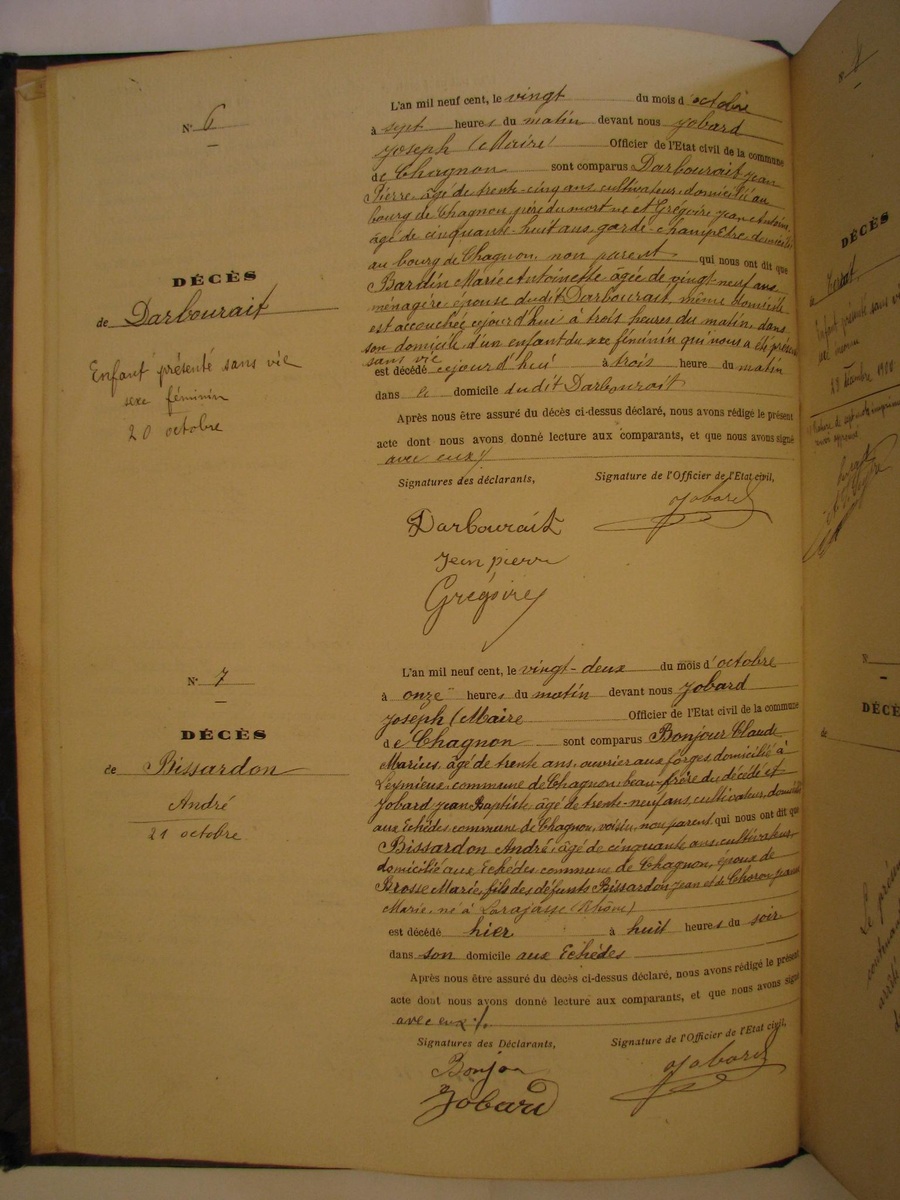 N° 6
DÉCÈS
de Darbourait
Enfant présenté sans vie
sexe féminin
20 octobre
L'an mil neuf cent, le vingt du mois d'octobre
à sept heures du matin devant nous Jobard
Joseph (Maire) Officier de l'Etat civil de la commune
de Chagnon sont comparus Darbourait Jean
Pierre, âgé de trente-cinq ans cultivateur, domicilié au
bourg de Chagnon, père du mort né et Grégoire Jean Antoine,
âgé de cinquante-huit ans, garde-champêtre, domicilié
au bourg de Chagnon, non parent qui nous ont dit que
Bardin Marie Antoinette, âgée de vingt neuf ans
ménagère, épouse du dit Darbourait, même domicile
est accouchée cejourd'hui à trois heures du matin, dans
son domicile d'un enfant du sexe féminin qui nous a été présenté
sans vie
est décédé cejourd'hui à trois heure du matin
dans domicile du dit Darbourait
Après nous être assuré du décès ci-dessus déclaré, nous avons rédigé le présent
acte dont nous avons donné lecture aux comparants, et que nous avons signé
avec eux /
Signatures des déclarants, Signature de l'Officier de l'Etat civil,
Jobard
Darbourait
Jean pierre
Grégoire
N° 7
DÉCÈS
de Bissardon
André
21 octobre
L'an mil neuf cent, le vingt-deux du mois d'octobre
à onze heures du matin devant nous Jobard
Joseph (Maire Officier de l'Etat civil de la commune
de Chagnon sont comparus Bonjour Claude
Marius, âgé de trente ans, ouvrier aux forges domicilié à
Leymieux, commune de Chagnon, beau-frère du décédé et
Jobard Jean Baptiste âgé de trente-neuf ans, cultivateur, domicilié
aux Echèdes, commune de Chagnon, voisin, non parent qui nous ont dit que
Bissardon André, âgé de cinquante ans, cultivateur,
domicilié aux Echèdes, commune de Chagnon, époux de
Brosse Marie, fils des défunts Bissardon Jean et de Choron Jeanne
Marie, né à Larajasse (Rhône)
est décédé hier à huit heures du soir
dans son domicile aux Echèdes
Après nous être assuré du décès ci-dessus déclaré, nous avons rédigé le présent
acte dont nous avons donné lecture aux comparants, et que nous avons signé
avec eux ./.
Signatures des Déclarants, Signature de l'Officier de l'Etat civil,
Bonjour Jobard
Jobard
N° 8
DÉCÈS
de
Enfant présenté sans
N
DÉCÈ
de
Le